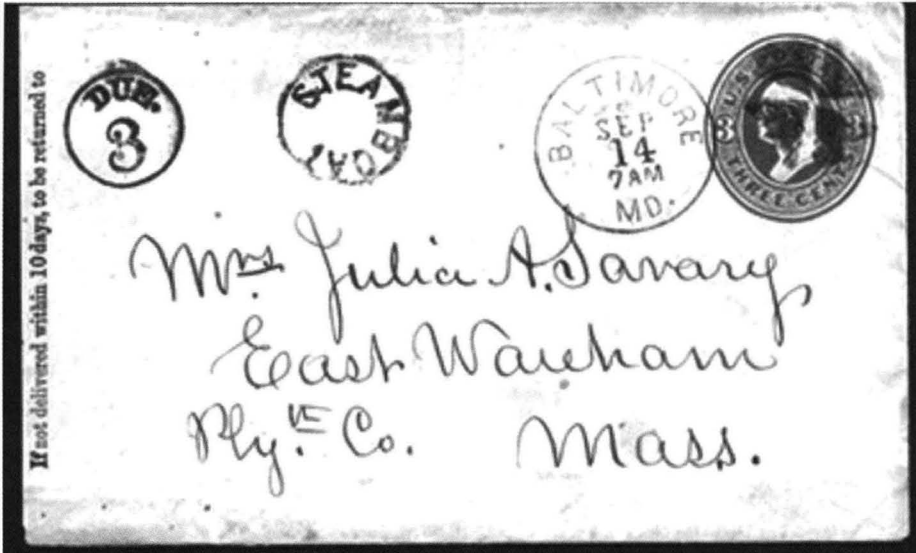 If not delivered within 10 days, to be returned to
DUE.
3
STEAMBOAT
BALTIMORE
SEP
14
7AM
MD.
U.S.
3 3
THREE CENTS
Mrs. Julia A. Savary
East Wareham
Ply. Co. Mass.